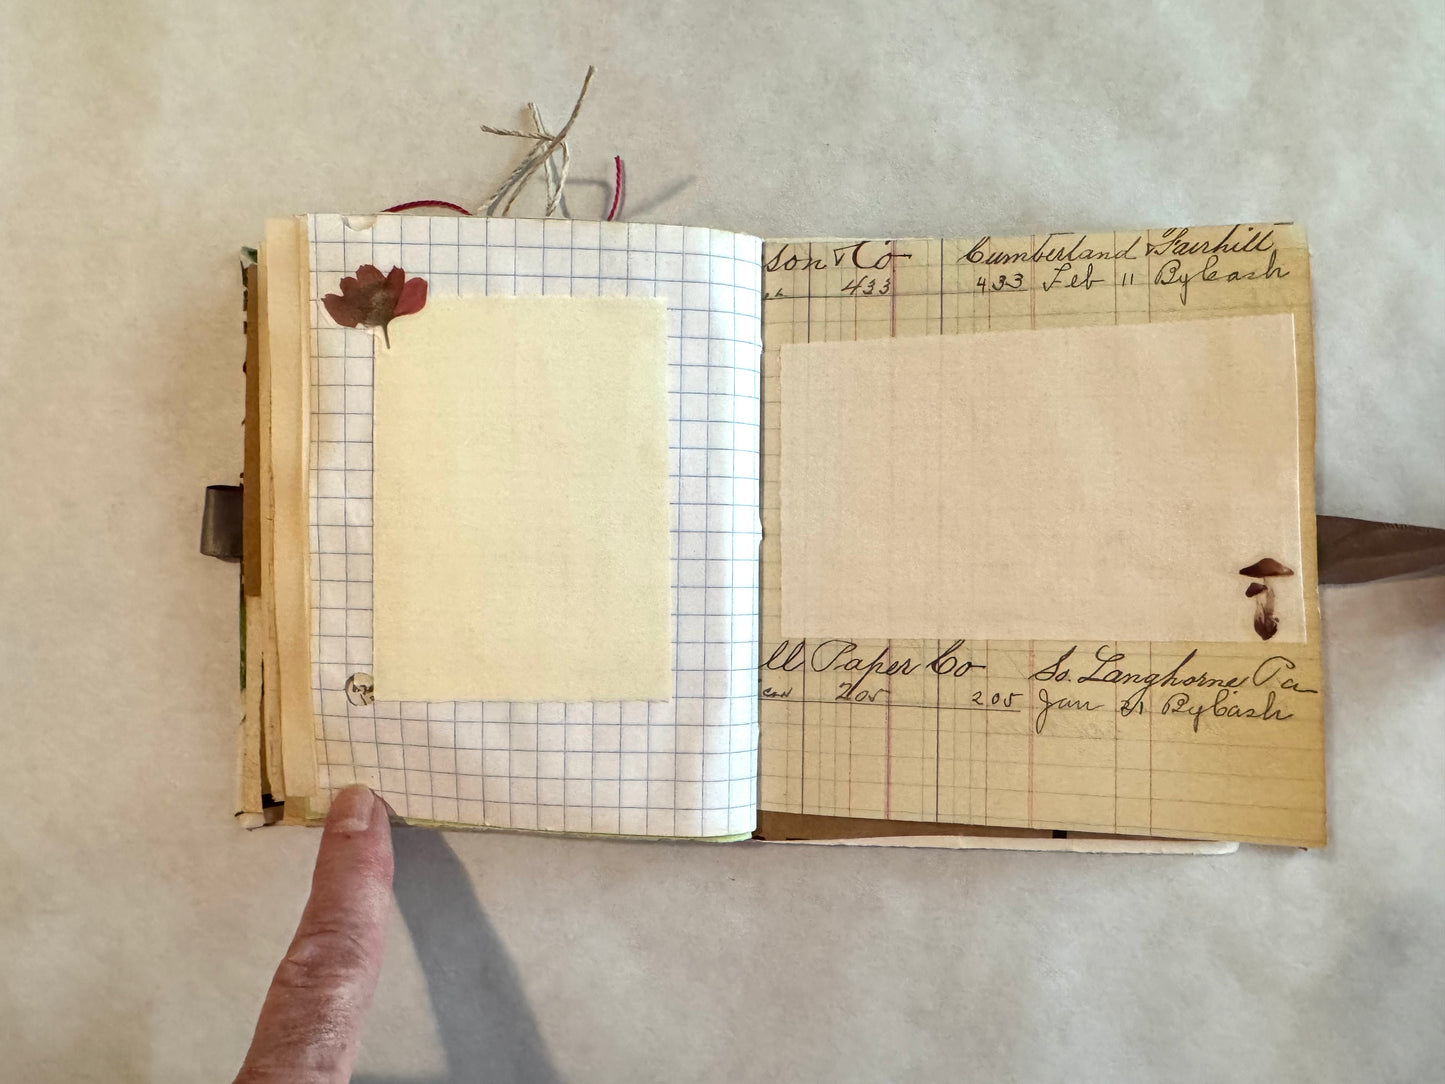 son & Co Cumberland & Fairhill
433 433 Feb 11 By Cash
ll Paper Co So. Langhorne Pa
205 205 Jan 31 By Cash